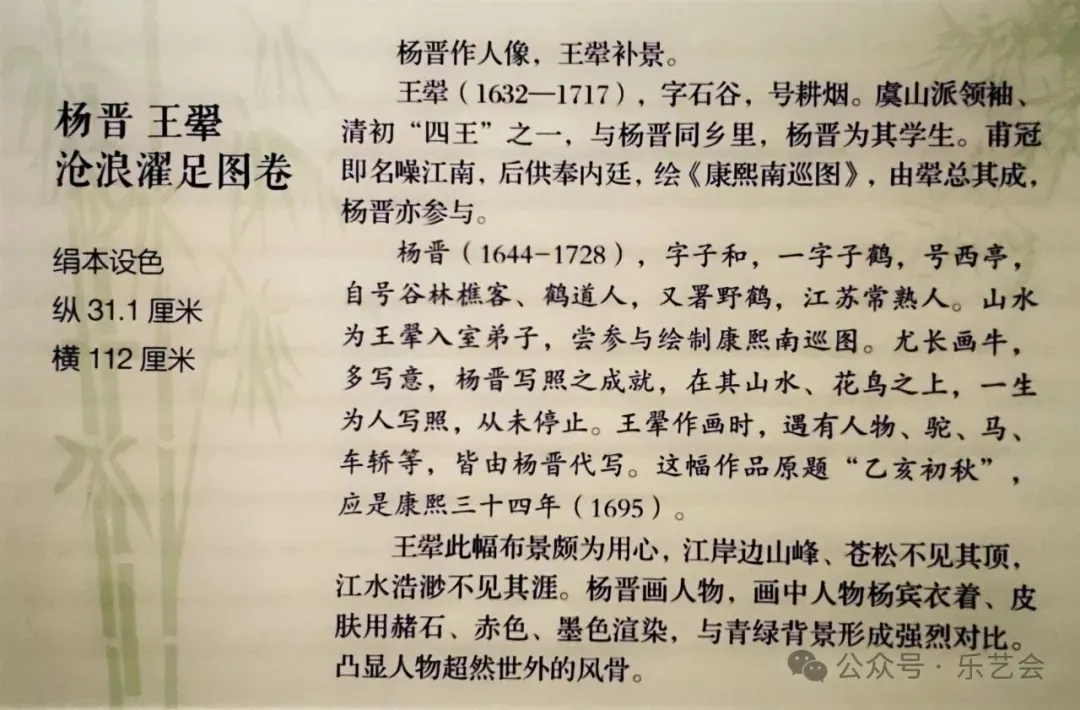 杨晋 王翚
沧浪濯足图卷
绢本设色
纵 31.1 厘米
横 112 厘米
杨晋作人像，王翚补景。
王翚（1632—1717），字石谷，号耕烟。虞山派领袖、
清初“四王”之一，与杨晋同乡里，杨晋为其学生。甫冠
即名噪江南，后供奉内廷，绘《康熙南巡图》，由翚总其成，
杨晋亦参与。
杨晋（1644-1728），字子和，一字子鹤，号西亭，
自号谷林樵客、鹤道人，又署野鹤，江苏常熟人。山水
为王翚入室弟子，尝参与绘制康熙南巡图。尤长画牛，
多写意，杨晋写照之成就，在其山水、花鸟之上，一生
为人写照，从未停止。王翚作画时，遇有人物、驼、马、
车轿等，皆由杨晋代写。这幅作品原题“乙亥初秋”，
应是康熙三十四年（1695）。
王翚此幅布景颇为用心，江岸边山峰、苍松不见其顶，
江水浩渺不见其涯。杨晋画人物，画中人物杨宾衣着、皮
肤用赭石、赤色、墨色渲染，与青绿背景形成强烈对比。
凸显人物超然世外的风骨。
公众号·乐艺会